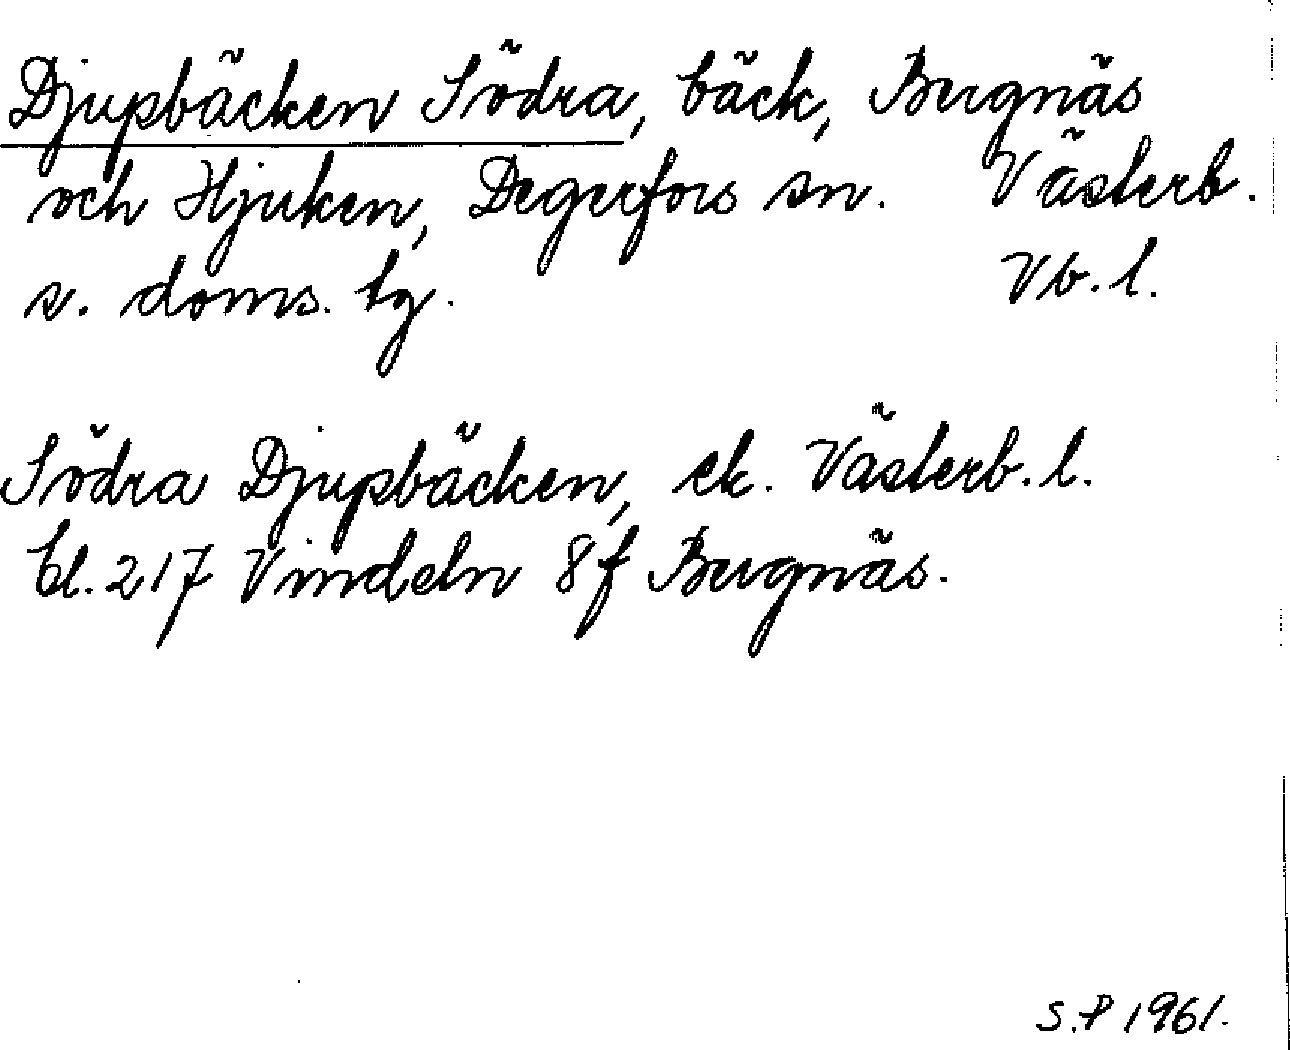 Djupbäcken Södra, bäck, Bugnäs
och Hjuken, Degerfors sn. Västerb.
s. doms. tg. Vb. l.
Södra Djupbäcken, ek. Västerb. l.
bl. 217 Vindeln 8f Bugnäs.
S.P 1961.